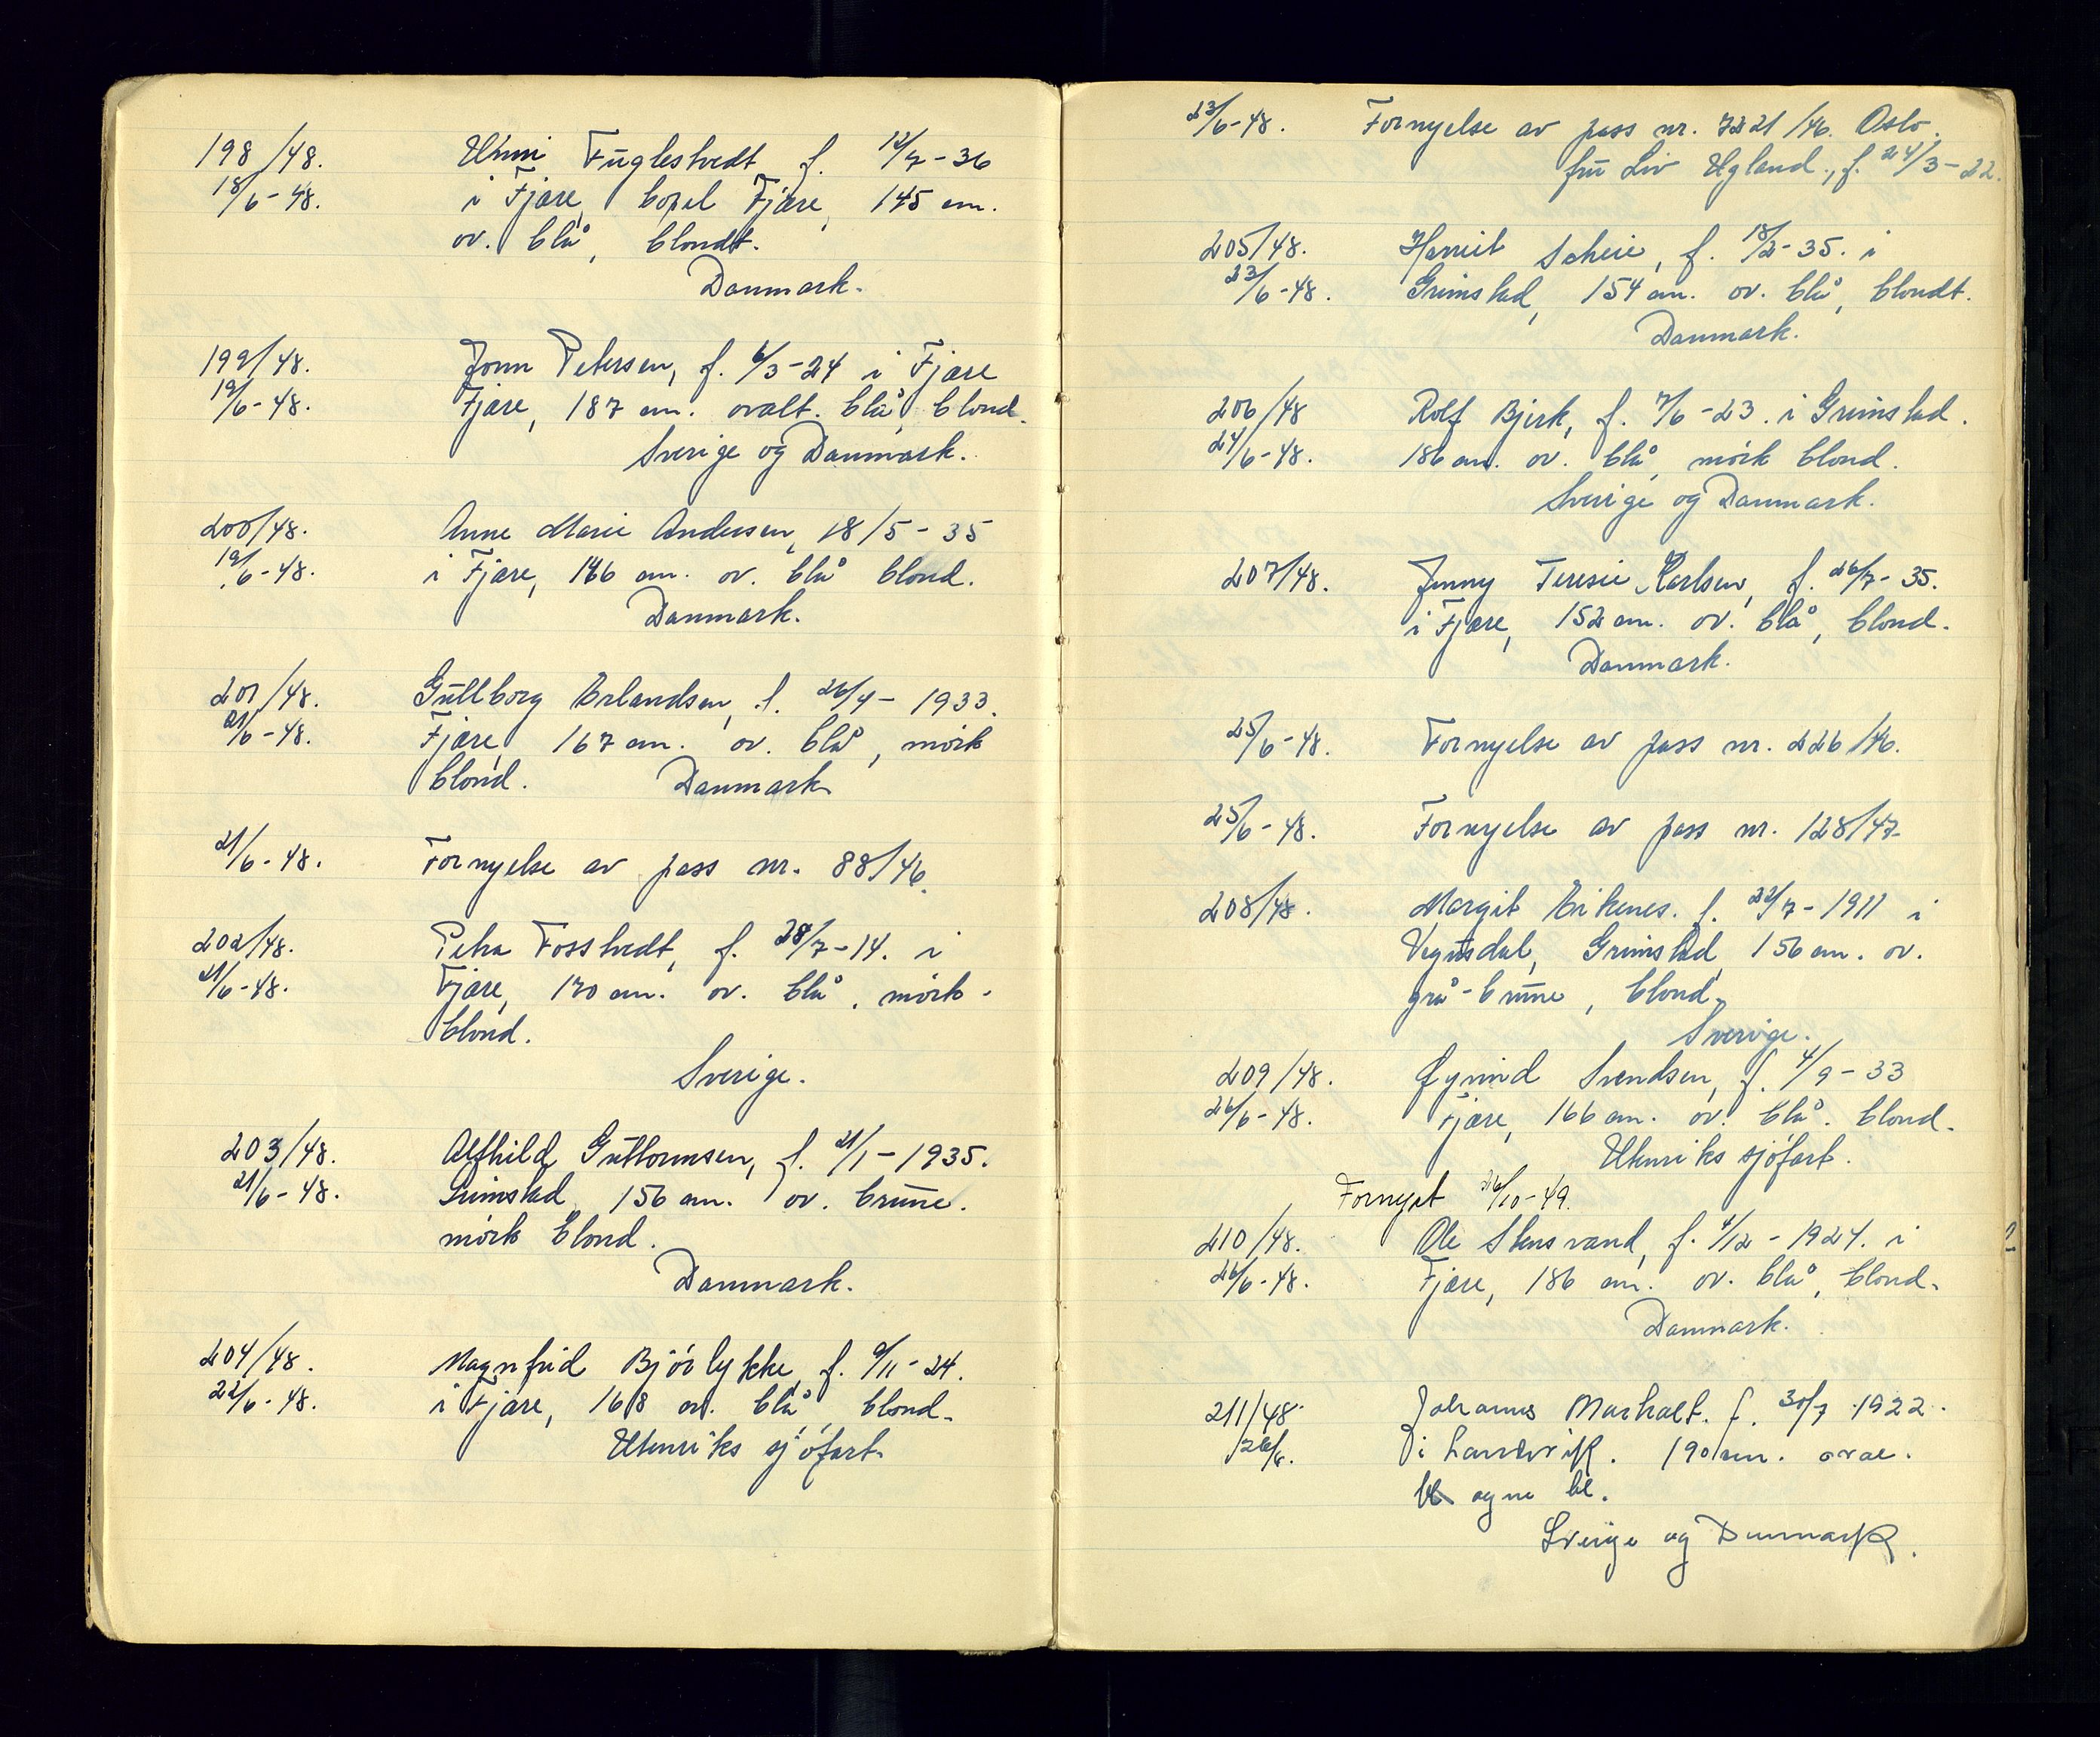 198/48. Unni Fuglestvedt f. 12/7-36
18/6-48. i Fjære, bopel Fjære, 145 cm.
ov. blå, blondt.
Danmark.
199/48. Jonn Petersen, f. 6/3-24 i Fjære
19/6-48. Fjære, 187 cm. ovalt. blå, blond.
Sverige og Danmark.
200/48. Anne Marie Andersen, 18/5-35
19/6-48. i Fjære, 166 cm. ov. blå blond.
Danmark.
201/48. Gullborg Erlandsen, f. 26/4-1933.
21/6-48. Fjære, 167 cm. ov. blå, mörk
blond. Danmark
21/6-48. Fornyelse av pass nr. 88/46.
202/48. Petra Fosstvedt, f. 28/7-14. i
21/6-48. Fjære, 170 cm. ov. blå, mörk-
blond.
Sverige.
203/48. Alfhild Guttormsen, f. 21/1-1935.
21/6-48. Grimstad, 156 cm. ov. brune.
mörk blond.
Danmark.
204/48. Magnfrid Bjórlykke, f. 9/11-24.
22/6-48. i Fjære, 168 ov. blå, blond.
Utenriks sjófart.
23/6-48. Fornyelse av pass nr. 7221/46. Oslo.
fru Liv Ugland., f. 24/3-22.
205/48. Harriet Scheie, f. 18/2-35. i
23/6-48. Grimstad, 154 cm. ov. blå, blondt.
Danmark.
206/48 Rolf Bjerk, f. 7/6-23. i Grimstad.
24/6-48. 186 cm. ov. blå, mörk blond.
Sverige og Danmark.
207/48. Jenny Teresie Karlsen, f. 26/7-35.
i Fjære, 152 cm. ov. blå, blond.
Danmark.
25/6-48. Fornyelse av pass nr. 226/46.
25/6-48. Fornyelse av pass nr. 128/47.
208/48. Margit Eikenes. f. 22/7-1911 i
Vegusdal, Grimstad, 156 cm. ov.
grå-brune, blond,
Sverige.
209/48. Øyvind Svendsen, f. 4/9-33
26/6-48. Fjære, 166 cm. ov. blå. blond.
Utenriks sjófart.
Fornyet 26/10-49.
210/48. Ole Stensvand, f. 4/12-1924. i
26/6-48. Fjære, 186 cm. ov. blå, blond.
Danmark.
211/48. Johannes Marholt. f. 30/7 1922.
26/6. i Landvik. 190 cm. oval.
øgne bl.
Sverige og Danmark.